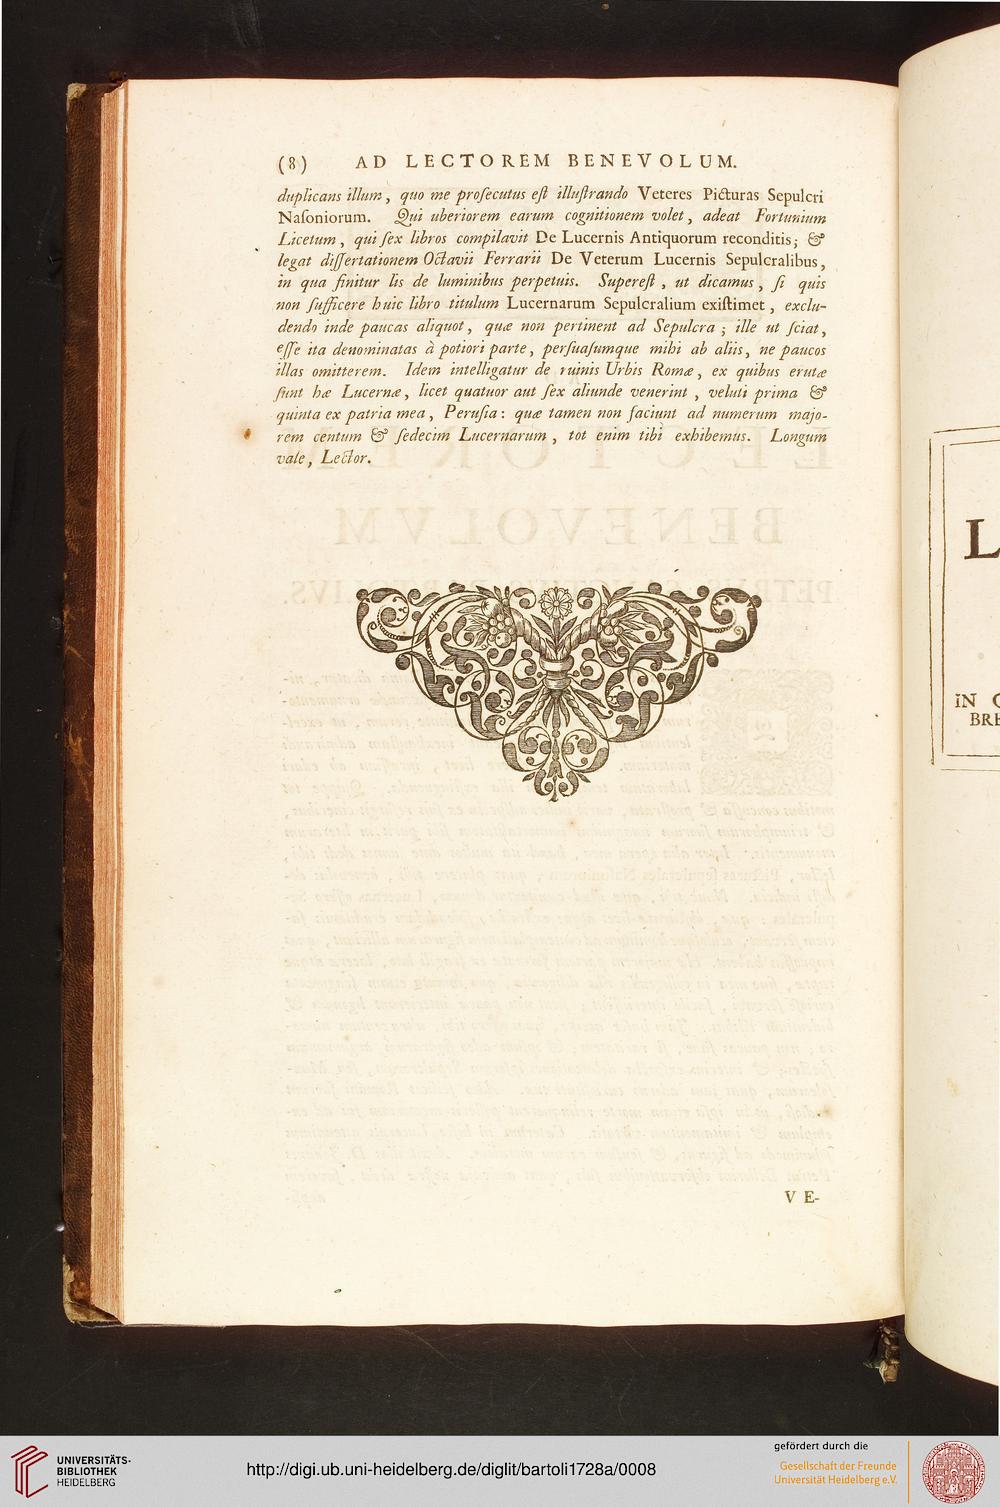 (8) AD LECTOREM BENEVOLUM.
duplicans illum, quo me proſecutus eſt illuſtrando Veteres Picturas Sepulcri
Naſoniorum. Qui uberiorem earum cognitionem volet, adeat Fortunium
Licetum, qui ſex libros compilavit De Lucernis Antiquorum reconditis; &
legat diſſertationem Octavii Ferrarii De Veterum Lucernis Sepulcralibus,
in qua finitur lis de luminibus perpetuis. Supereſt, ut dicamus, ſi quis
non ſufficere huic libro titulum Lucernarum Sepulcralium exiſtimet, exclu-
dendo inde paucas aliquot, quæ non pertinent ad Sepulcra; ille ut ſciat,
eſſe ita denominatas à potiori parte, perſuaſumque mihi ab aliis, ne paucos
illas omitterem. Idem intelligatur de ruinis Urbis Romæ, ex quibus erutæ
ſunt hæ Lucernæ, licet quatuor aut ſex aliunde venerint, veluti prima &
quinta ex patria mea, Peruſia: quæ tamen non faciunt ad numerum majo-
rem centum & ſedecim Lucernarum, tot enim tibi exhibemus. Longum
vale, Lector.
V E-
L
IN
BRE
UNIVERSITÄTS-
BIBLIOTHEK
HEIDELBERG
http://digi.ub.uni-heidelberg.de/diglit/bartoli1728a/0008
gefördert durch die
Gesellschaft der Freunde
Universität Heidelberg e.V.